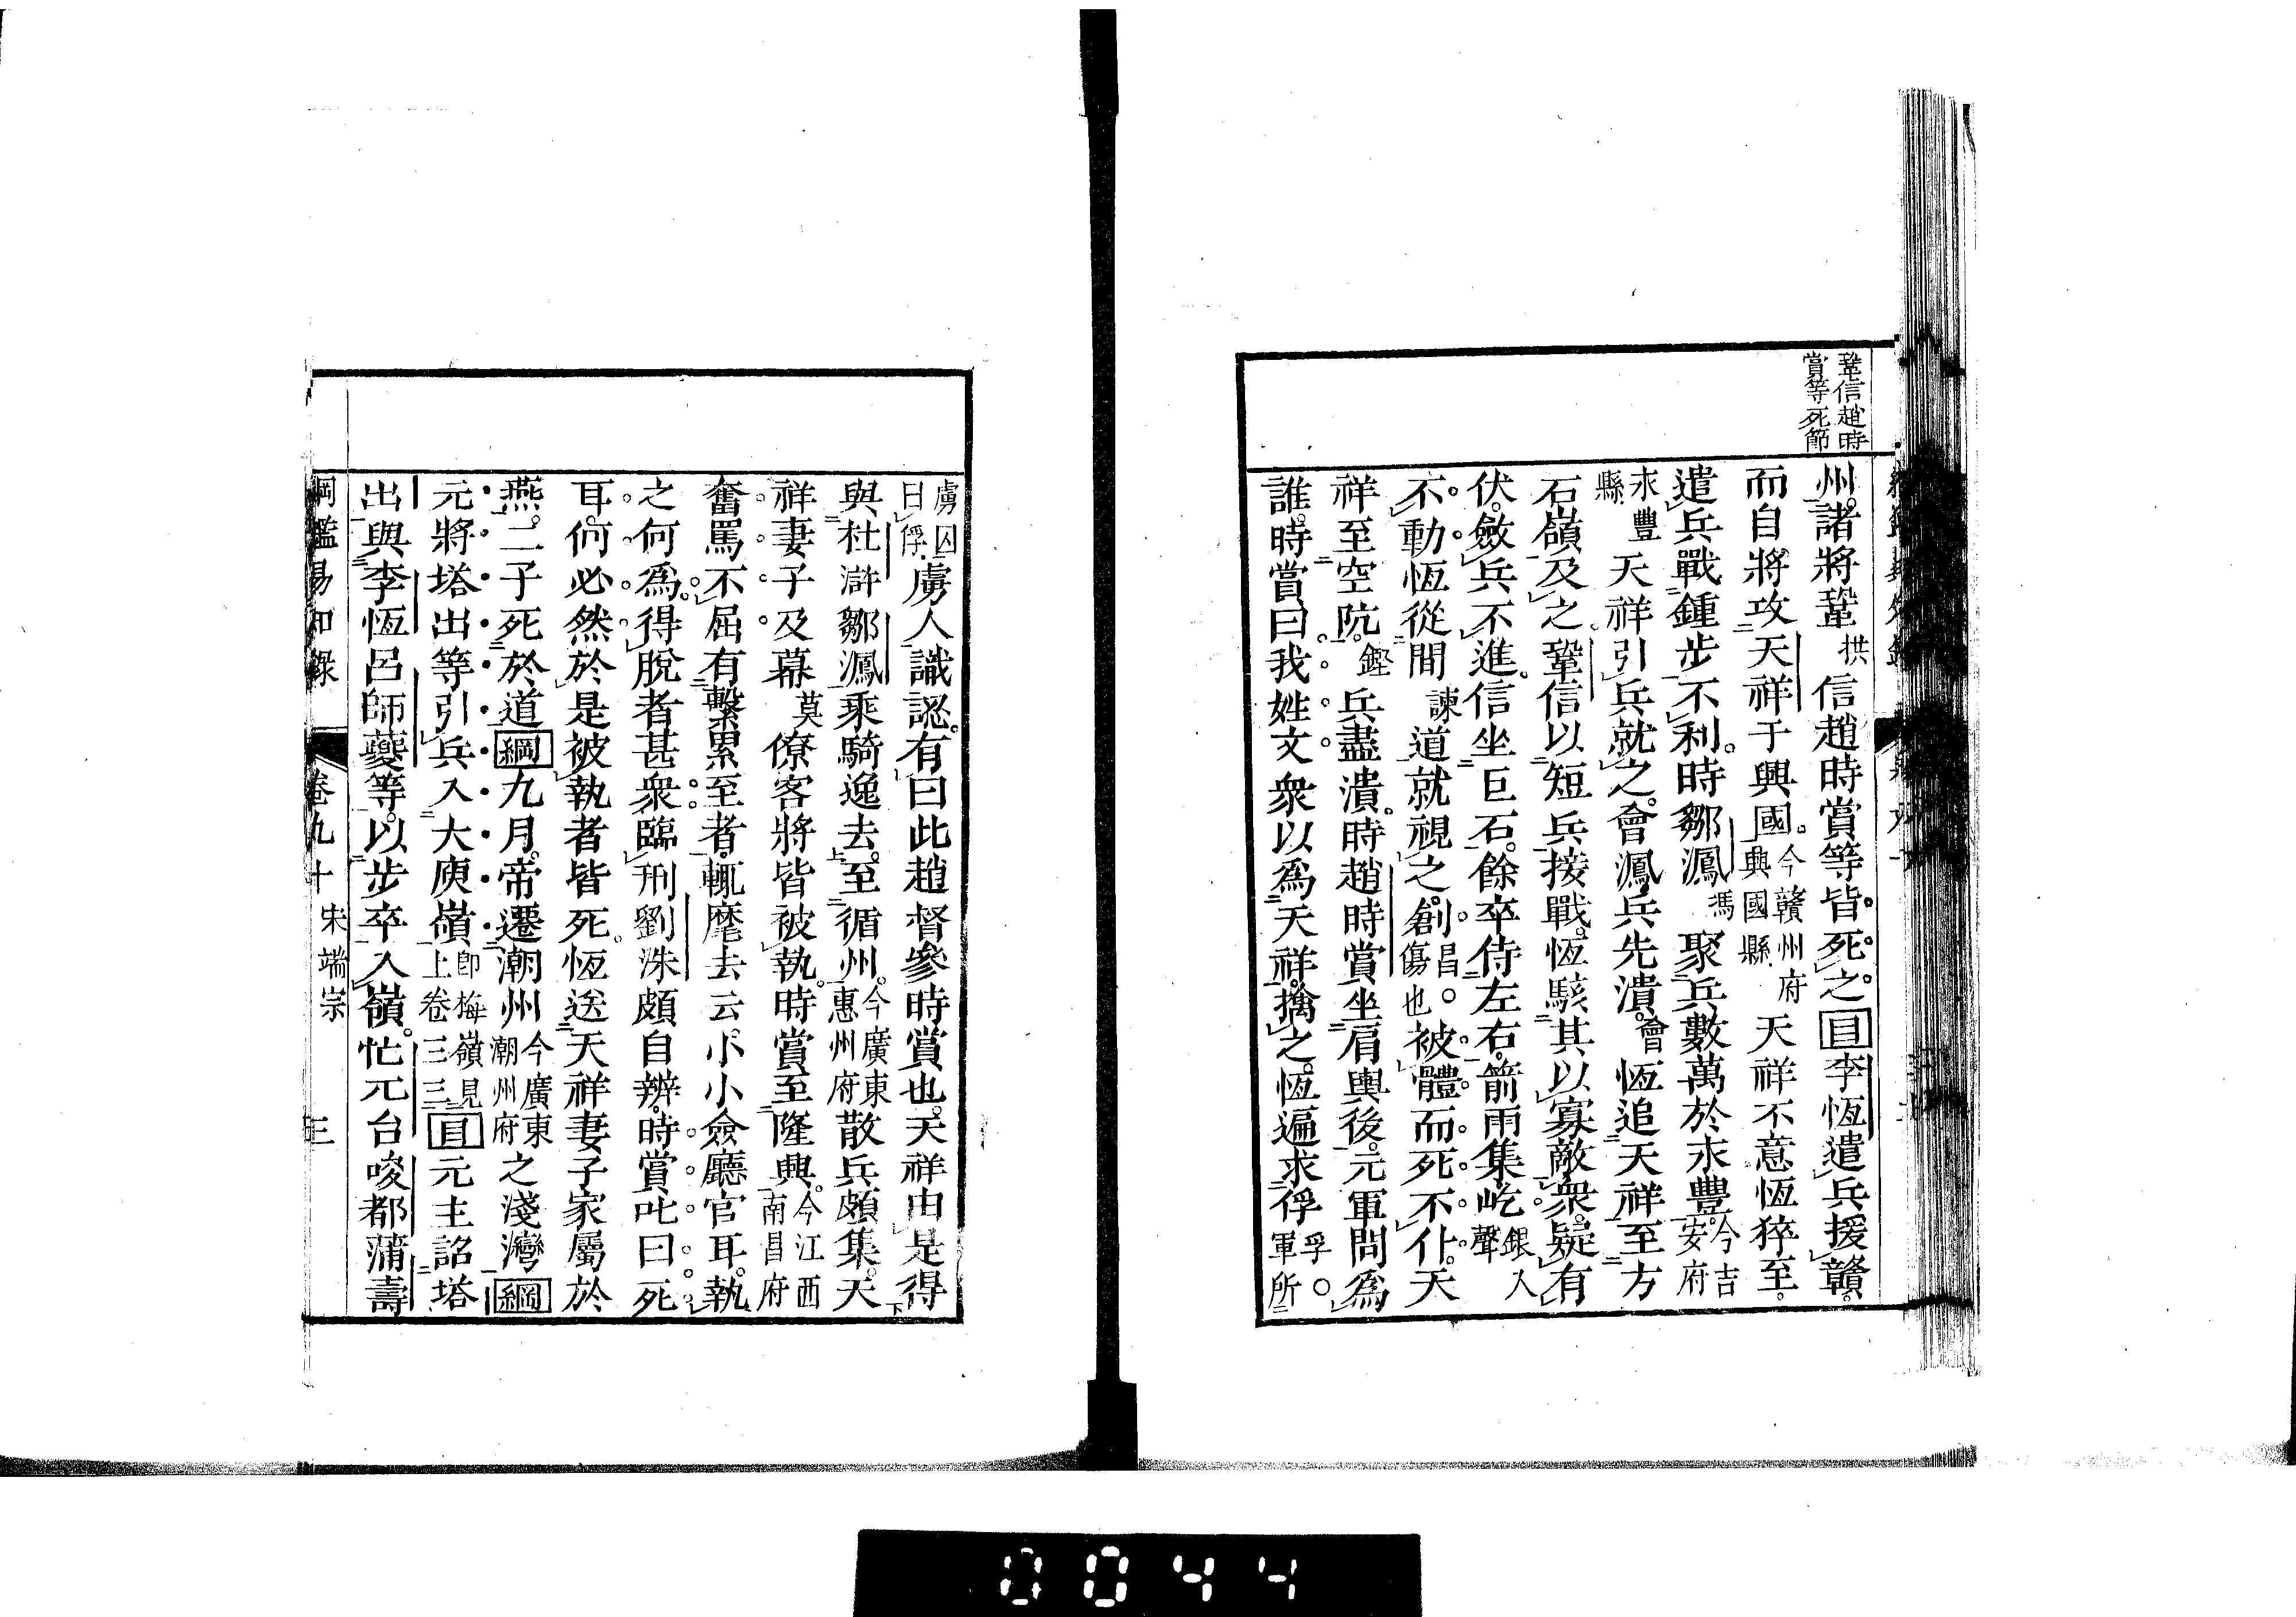 鞏信趙時
賞等死節
州。諸將鞏拱信趙時賞等皆死之。目李恆遣兵援贛。
而自將攻天祥于興國。今贛州府興國縣天祥不意恆猝至。
遣兵戰鍾步不利。時鄒㵯馮聚兵數萬於永豐。今吉安府
永豐縣天祥引兵就之。會㵯兵先潰。會恆追天祥至方
石嶺及之鞏信以短兵接戰。恆駭其以寡敵衆。疑有
伏。斂兵不進。信坐巨石。餘卒侍左右。箭雨集。屹銀入聲
不動恆從間諫道就視之。創昌○傷也被體而死不仆。天
祥至空阬。鏗兵盡潰。時趙時賞坐肩輿後。元軍問爲
誰。時賞曰我姓文衆以爲天祥。擒之。恆遍求俘孚○軍所
虜囚曰俘虜人識認。有曰此趙督參時賞也。天祥由是得
與杜滸鄒㵯乘騎逸去。至循州。今廣東惠州府散兵頗集。天
祥妻子及幕莫僚客將皆被執。時賞至隆興。今江西南昌府
奮罵不屈有繫累至者。輒麾去云。小小僉廳官耳。執
之何爲。得脫者甚衆臨刑劉洙頗自辨。時賞叱曰死
耳。何必然於是被執者皆死。恆送天祥妻子家屬於
燕。二子死於道綱九月。帝遷潮州今廣東潮州府之淺灣綱
元將塔出等引兵入大庾嶺卽梅嶺見上卷三三目元主詔塔
出與李恆呂師夔等。以步卒入嶺。忙兀台唆都蒲壽
綱鑑易知錄　卷九十　宋端宗　三
0044